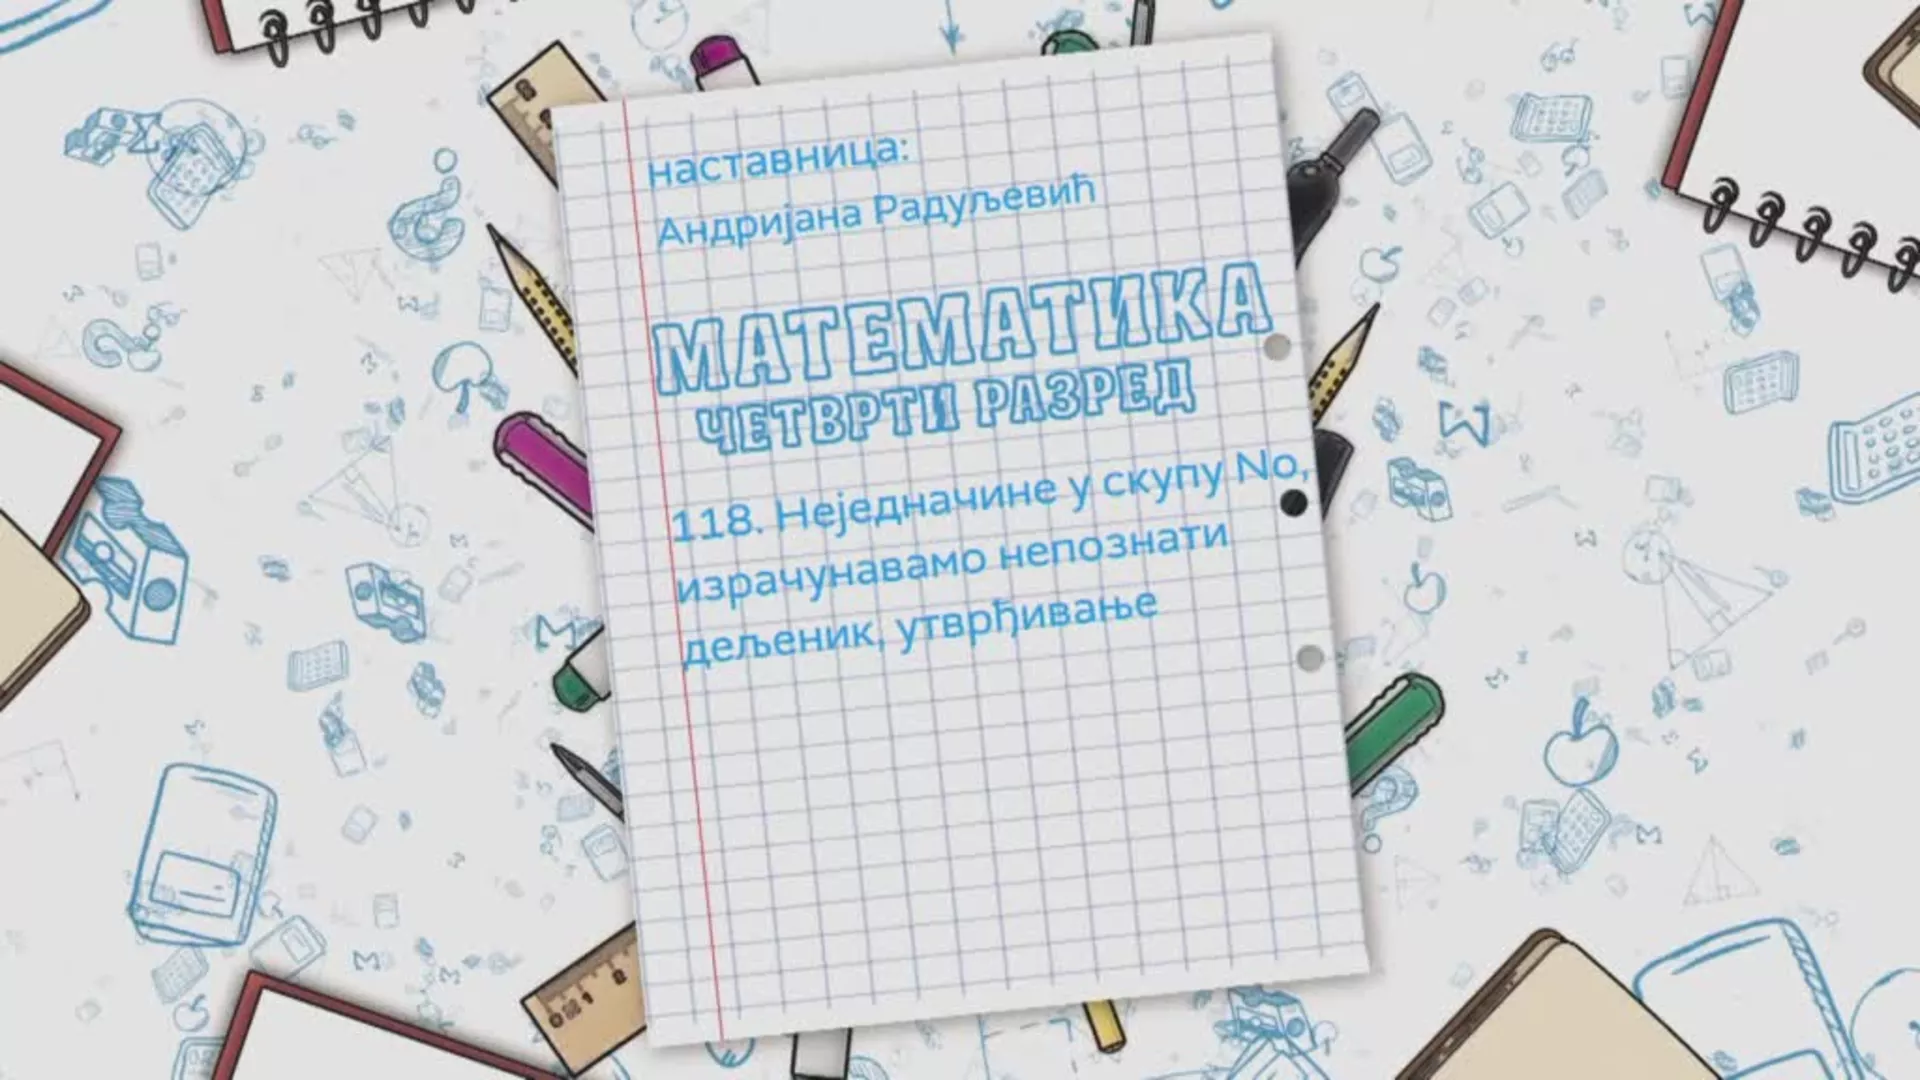 наставница:
Андријана Радуљевић
МАТЕМАТИКА
ЧЕТВРТИ РАЗРЕД
118. Неједначине у скупу No,
израчунавамо непознати
дељеник, утврђивање